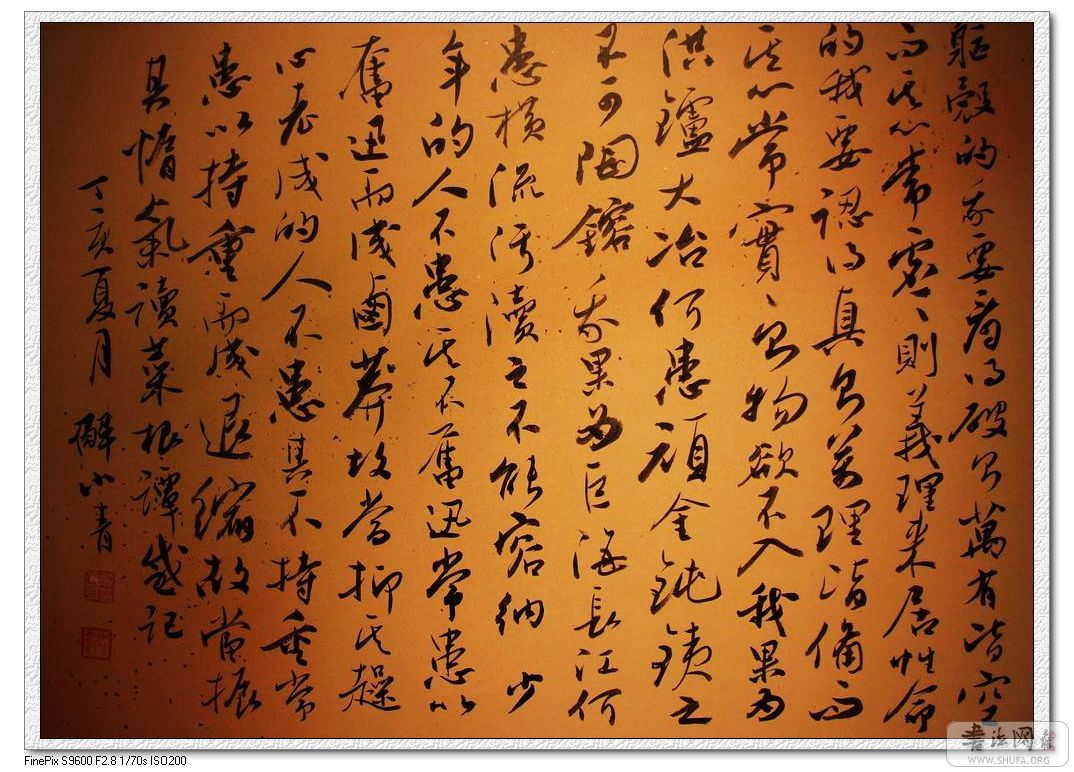 躯殼的我要看得破則萬有皆空
而其心常虛虛則義理來居性命
的我要認得真則萬理皆備而
其心常實實則物欲不入我果為
洪鑪大冶何患頑金鈍鐵之
不可陶鎔我果為巨海長江何
患橫流污瀆之不能容納 少
年的人不患其不奮迅常患以
奮迅而成鹵莽故當抑其躁
心老成的人不患其不持重常
患以持重而成退縮故當振
其惰氣讀菜根譚感記
丁亥夏月 醉小青
書法网
WWW.SHUFA.ORG
FinePix S9600 F2.8 1/70s ISO200